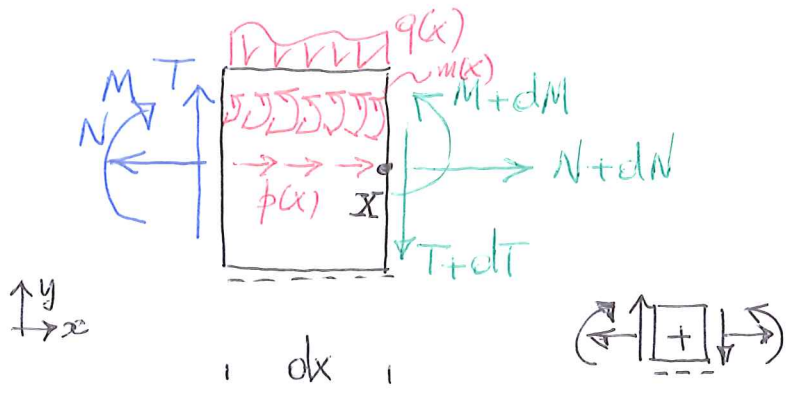 q(x)
m(x)
M
T
N
M+dM
N+dN
p(x)
X
T+dT
y
x
dx
+